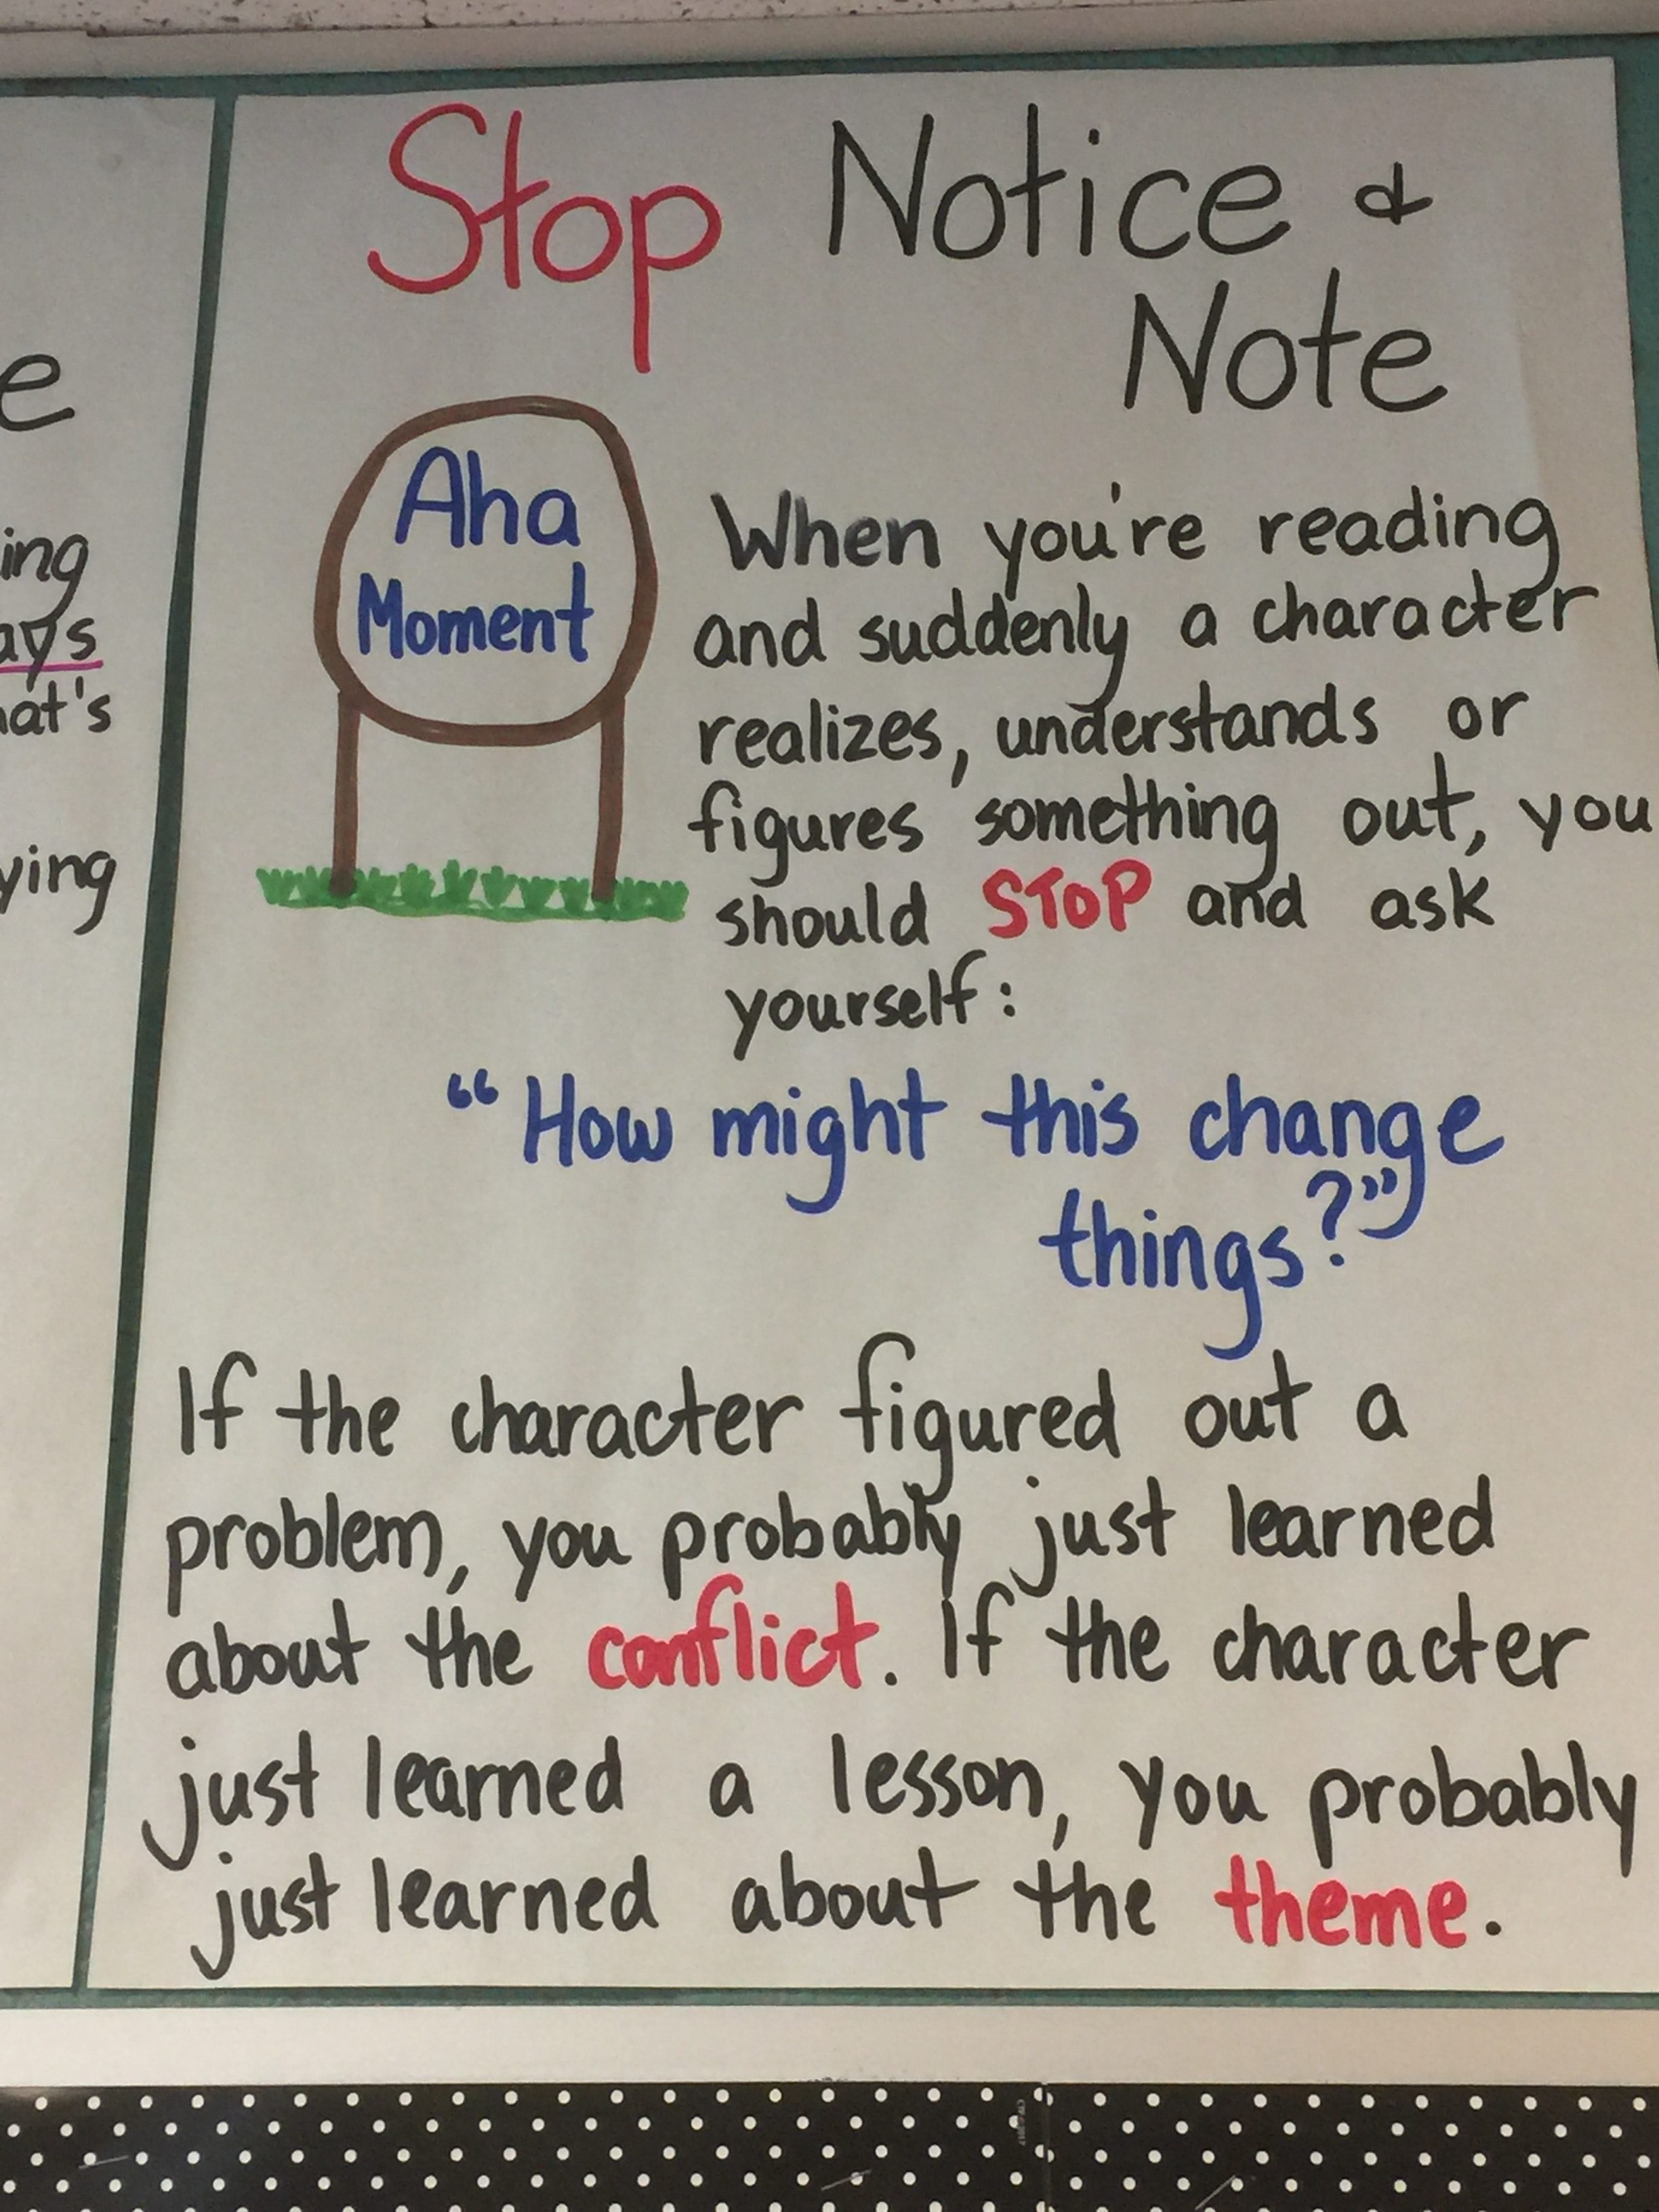 Stop Notice &
Note
Aha
Moment
When you're reading
and suddenly a character
realizes, understands or
figures something out, you
should STOP and ask
yourself:
"How might this change
things?"
If the character figured out a
problem, you probably just learned
about the conflict. If the character
just learned a lesson, you probably
just learned about the theme.
e
ing
ays
hat's
ying